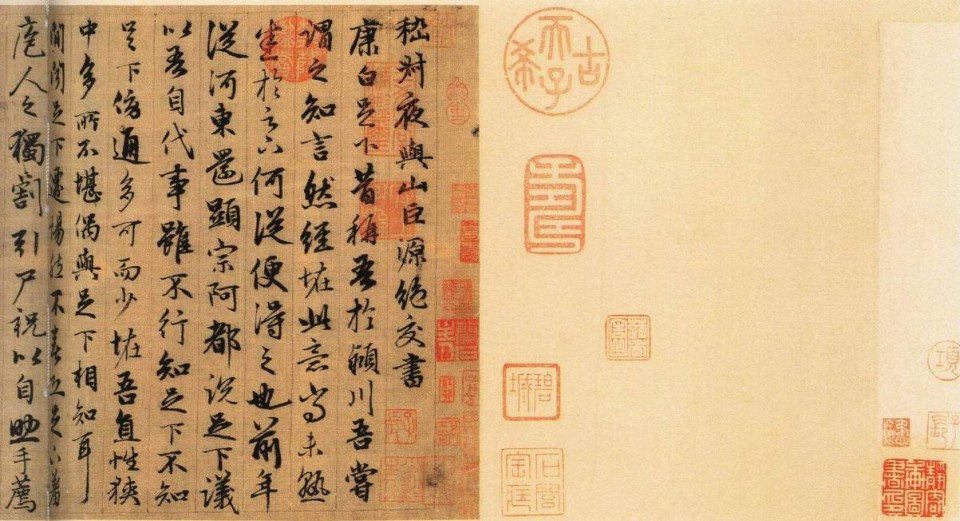 嵇叔夜與山巨源絕交書
康白足下昔稱吾於潁川吾嘗
謂之知言然經怪此意尚未熟
悉於足下何從便得之也前年
從河東還顯宗阿都說足下議
以吾自代事雖不行知足下不知
足下傍通多可而少怪吾直性狹
中多所不堪偶與足下相知耳
間聞足下遷惕然不喜恐足下羞
庖人之獨割引尸祝以自助手薦
古希天子
壽
項